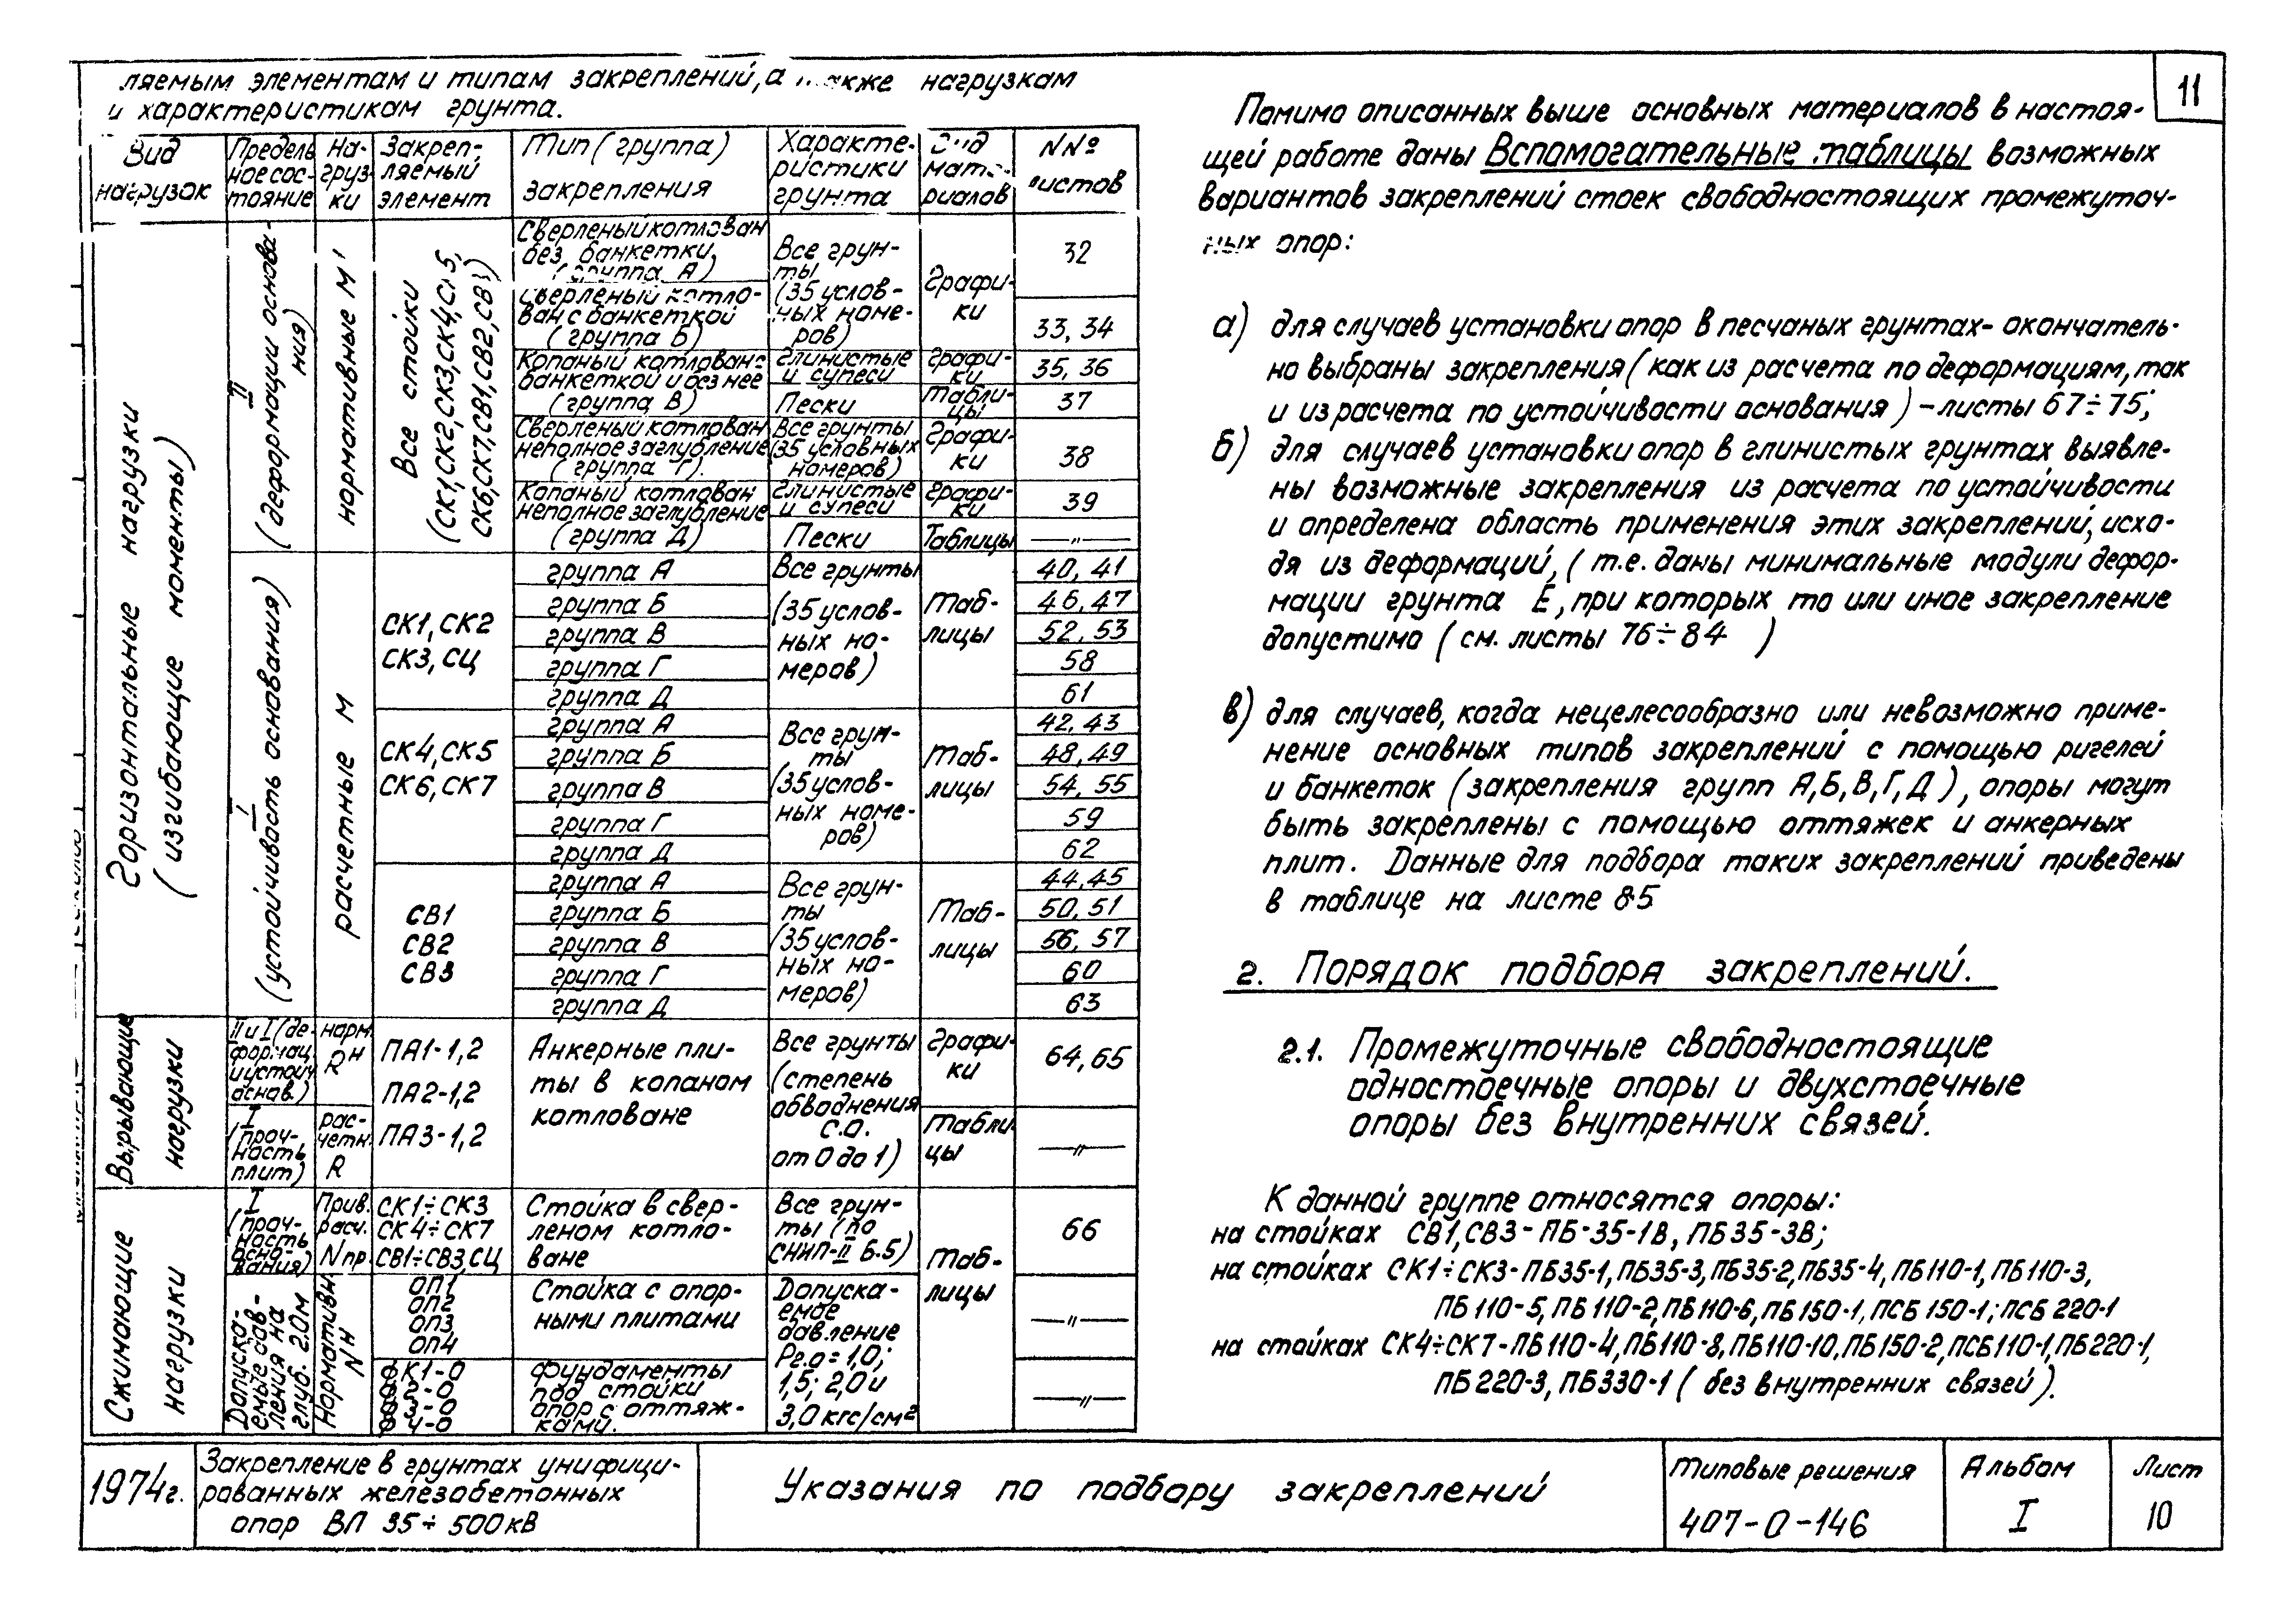 ляемым элементам и типам закреплений, а также нагрузкам
и характеристикам грунта.
Вид нагрузок
Предель ное сос- тояние
На- груз- ки
Закреп- ляемый элемент
Тип (группа) закрепления
Характе- ристики грунта
риалов
NNº листов
Горизонтальные нагрузки
(изгибающие моменты)
II
(деформации основа- ния)
нормативные М'
Все стойки
(СК1, СК2, СК3, СК4, СК5,
СК6, СК7, СВ1, СВ2, СВ3)
Сверленый котлован
без банкетки
(группа А)
Все грун-
ты
(35 услов-
ных номе-
ров)
Графи-
ки
32
Сверленый котло-
ван с банкеткой
(группа Б)
33, 34
Копаный котлован с
банкеткой и без нее
(группа В)
Глинистые
и супеси
Графи-
ки
35, 36
Пески
Табли-
цы
37
Сверленый котлован
неполное заглубление
(группа Г).
Все грунты
(35 условных
номеров)
Графи-
ки
38
Копаный котлован
неполное заглубление
(группа Д)
Глинистые
и супеси
Графи-
ки
39
Пески
Таблицы
—"—
I
(устойчивость основания)
расчетные М
СК1, СК2
СК3, СЦ
Все грунты
(35 услов-
ных но-
меров)
Таб-
лицы
группа А 40, 41
группа Б 46, 47
группа В 52, 53
группа Г 58
группа Д 61
СК4, СК5
СК6, СК7
Все грун-
ты
(35 услов-
ных номе-
ров)
Таб-
лицы
группа А 42, 43
группа Б 48, 49
группа В 54, 55
группа Г 59
группа Д 62
СВ1
СВ2
СВ3
Все грун-
ты
(35 услов-
ных но-
меров)
Таб-
лицы
группа А 44, 45
группа Б 50, 51
группа В 56, 57
группа Г 60
группа Д 63
Вырывающие
нагрузки
II и I (де-
формац.
и устойч.
основ.)
норм.
Rн
ПА1-1,2
ПА2-1,2
ПА3-1,2
Анкерные пли-
ты в копаном
котловане
Все грунты
(степень
обводнения
С.О.
от 0 до 1)
Графи-
ки
64, 65
I
(проч-
ность
плит)
рас-
четн.
R
Табли-
цы
—"—
Сжимающие
нагрузки
I
(проч-
ность
осно-
вания)
Прив.
расч.
Nпр.
СК1÷СК3
СК4÷СК7
СВ1÷СВ3, СЦ
Стойка в свер-
леном котло-
ване
Все грун-
ты (по
СНИП-II Б.5)
Таб-
лицы
66
Допуска-
емые дав-
ления на
глуб. 2.0м
Нормативн
Nн
ОП1
ОП2
ОП3
ОП4
Стойка с опор-
ными плитами
Допуска-
емое
давление
Рг.о = 1,0;
1,5; 2,0 и
3,0 кгс/см²
—"—
ФК1-0
Ф2-0
Ф3-0
Ф4-0
Фундаменты
под стойки
опор с оттяж-
ками.
—"—
11
Помимо описанных выше основных материалов в настоя-
щей работе даны Вспомогательные таблицы возможных
вариантов закреплений стоек свободностоящих промежуточ-
ных опор:
а) для случаев установки опор в песчаных грунтах - окончатель-
но выбраны закрепления (как из расчета по деформациям, так
и из расчета по устойчивости основания) - листы 67÷75;
б) для случаев установки опор в глинистых грунтах выявле-
ны возможные закрепления из расчета по устойчивости
и определена область применения этих закреплений, исхо-
дя из деформаций, (т.е. даны минимальные модули дефор-
мации грунта Е, при которых то или иное закрепление
допустимо (см. листы 76÷84 )
в) для случаев, когда нецелесообразно или невозможно приме-
нение основных типов закреплений с помощью ригелей
и банкеток (закрепления групп А, Б, В, Г, Д), опоры могут
быть закреплены с помощью оттяжек и анкерных
плит. Данные для подбора таких закреплений приведены
в таблице на листе 85
2. Порядок подбора закреплений.
2.1. Промежуточные свободностоящие
одностоечные опоры и двухстоечные
опоры без внутренних связей.
К данной группе относятся опоры:
на стойках СВ1, СВ3 - ПБ-35-1В, ПБ35-3В;
на стойках СК1÷СК3-ПБ35-1, ПБ35-3, ПБ35-2, ПБ35-4, ПБ110-1, ПБ110-3,
ПБ110-5, ПБ110-2, ПБ110-6, ПБ150-1, ПСБ150-1; ПСБ220-1
на стойках СК4÷СК7-ПБ110-4, ПБ110-8, ПБ110-10, ПБ150-2, ПСБ110-1, ПБ220-1,
ПБ220-3, ПБ330-1 (без внутренних связей).
1974г.
Закрепление в грунтах унифици-
рованных железобетонных
опор ВЛ 35÷500кВ
Указания по подбору закреплений
Типовые решения
407-0-146
Альбом
I
Лист
10